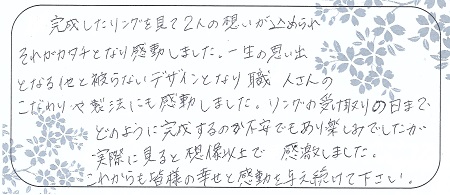 完成したリングを見て2人の想いが込められ
それがカタチとなり感動しました。一生の思い出
となる他と被らないデザインとなり職人さんの
こだわりや製法にも感動しました。リングの受け取りの日まで
どのように完成するのか不安でもあり楽しみでしたが
実際に見ると想像以上で感激しました。
これからも皆様の幸せと感動を与え続けて下さい。